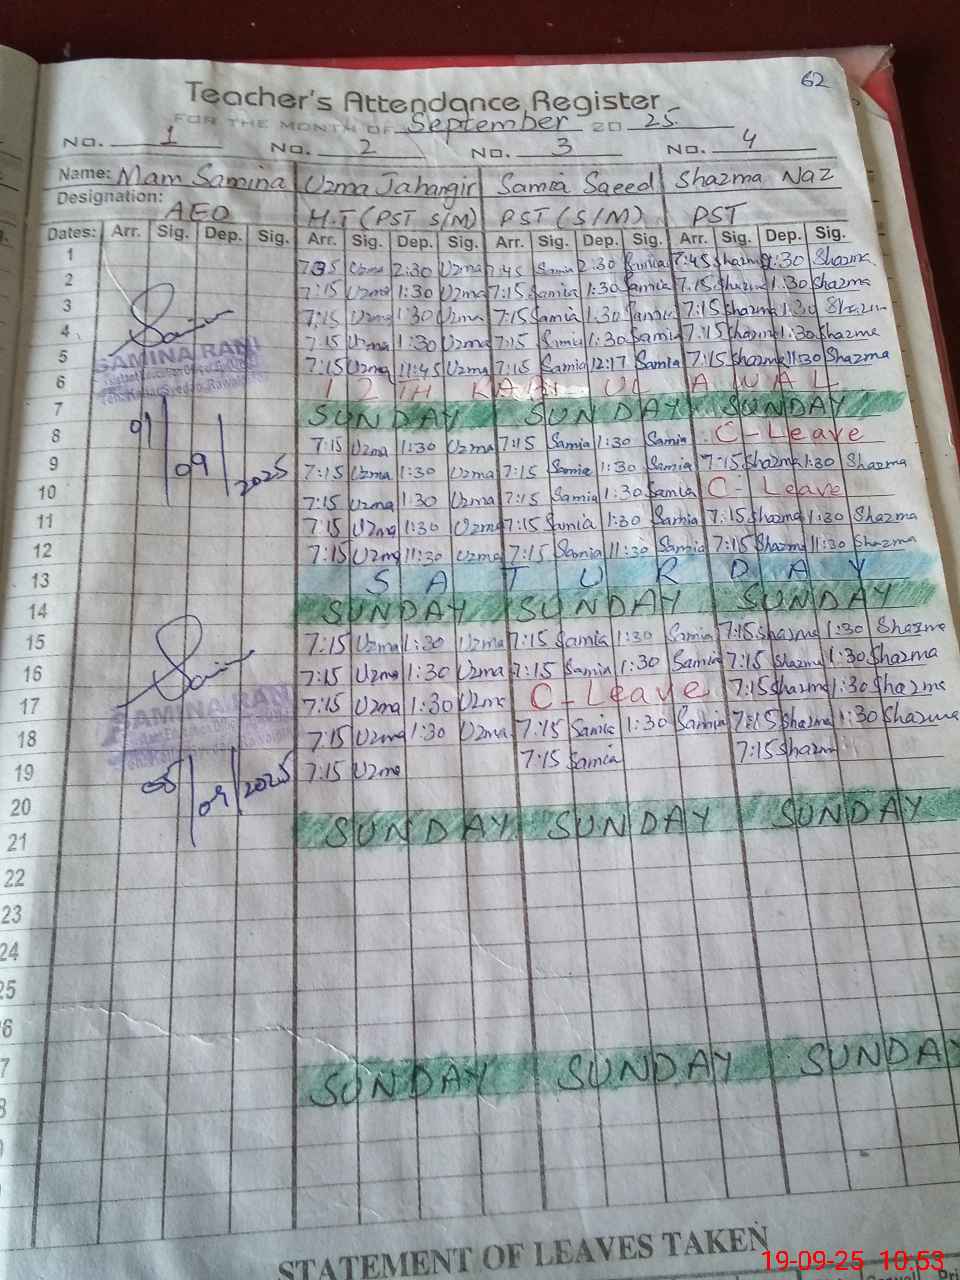 62
Teacher's Attendance Register
FOR THE MONTH OF September 2025
No. 1 No. 2 No. 3 No. 4
Name: Mam Samina Uzma Jahangir Samia Saeed Shazma Naz
Designation: AEO H.T (PST S/M) PST (S/M) PST
Dates: Arr. Sig. Dep. Sig. Arr. Sig. Dep. Sig. Arr. Sig. Dep. Sig. Arr. Sig. Dep. Sig.
1 Uzma 2:30 Uzma 7:45 Samia 2:30 Samia 7:45 Shazma 2:30 Shazma
2 7:15 Uzma 1:30 Uzma 7:15 Samia 1:30 Samia 7:15 Shazma 1:30 Shazma
3 7:15 Uzma 1:30 Uzma 7:15 Samia 1:30 Samia 7:15 Shazma 1:30 Shazma
4 7:15 Uzma 1:30 Uzma 7:15 Samia 1:30 Samia 7:15 Shazma 1:30 Shazma
5 7:15 Uzma 11:45 Uzma 7:15 Samia 12:17 Samia 7:15 Shazma 11:30 Shazma
SAMINA RANI
6 12TH RABI UL AWAL
7 SUNDAY SUNDAY SUNDAY
8 7:15 Uzma 1:30 Uzma 7:15 Samia 1:30 Samia C-Leave
01/09/2025
9 7:15 Uzma 1:30 Uzma 7:15 Samia 1:30 Samia 7:15 Shazma 1:30 Shazma
10 7:15 Uzma 1:30 Uzma 7:15 Samia 1:30 Samia C-Leave
11 7:15 Uzma 1:30 Uzma 7:15 Samia 1:30 Samia 7:15 Shazma 1:30 Shazma
12 7:15 Uzma 11:30 Uzma 7:15 Samia 11:30 Samia 7:15 Shazma 11:30 Shazma
13 SATURDAY
14 SUNDAY SUNDAY SUNDAY
15 7:15 Uzma 1:30 Uzma 7:15 Samia 1:30 Samia 7:15 Shazma 1:30 Shazma
16 7:15 Uzma 1:30 Uzma 7:15 Samia 1:30 Samia 7:15 Shazma 1:30 Shazma
17 7:15 Uzma 1:30 Uzma C-Leave 7:15 Shazma 1:30 Shazma
SAMINA RANI
18 7:15 Uzma 1:30 Uzma 7:15 Samia 1:30 Samia 7:15 Shazma 1:30 Shazma
19 7:15 Uzma 7:15 Samia 7:15 Shazma
05/09/2025
20
21 SUNDAY SUNDAY SUNDAY
22
23
24
25
6
7 SUNDAY SUNDAY SUNDAY
8
STATEMENT OF LEAVES TAKEN
19-09-25 10:53